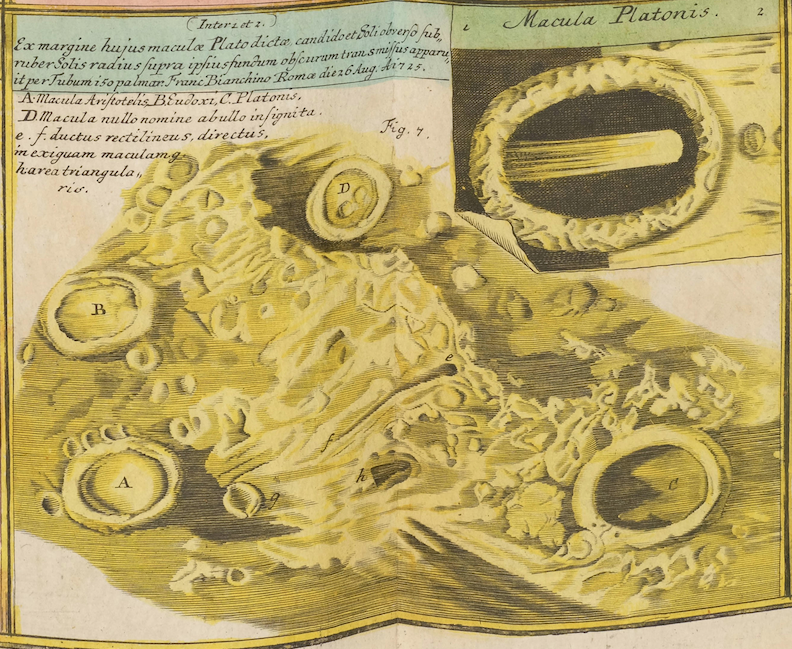 (Inter 1 et 2.)
Ex margine hujus maculæ Plato dictæ candido et Soli obverso sub„
ruber Solis radius supra ipsius fundum obscurum transmissus apparu„
it per Tubum 150 palmar. Franc Bianchino Romæ die 26 Aug. Ai 1725.
A. Macula Aristotelis B Eudoxi, C. Platonis,
D Macula nullo nomine ab ullo insignita.
e. f. ductus rectelineus, directus,
in exiguam maculam g.
h. area triangula„
ris.
Fig. 7.
1 Macula Platonis. 2
D
B
e
f
A
g
h
C